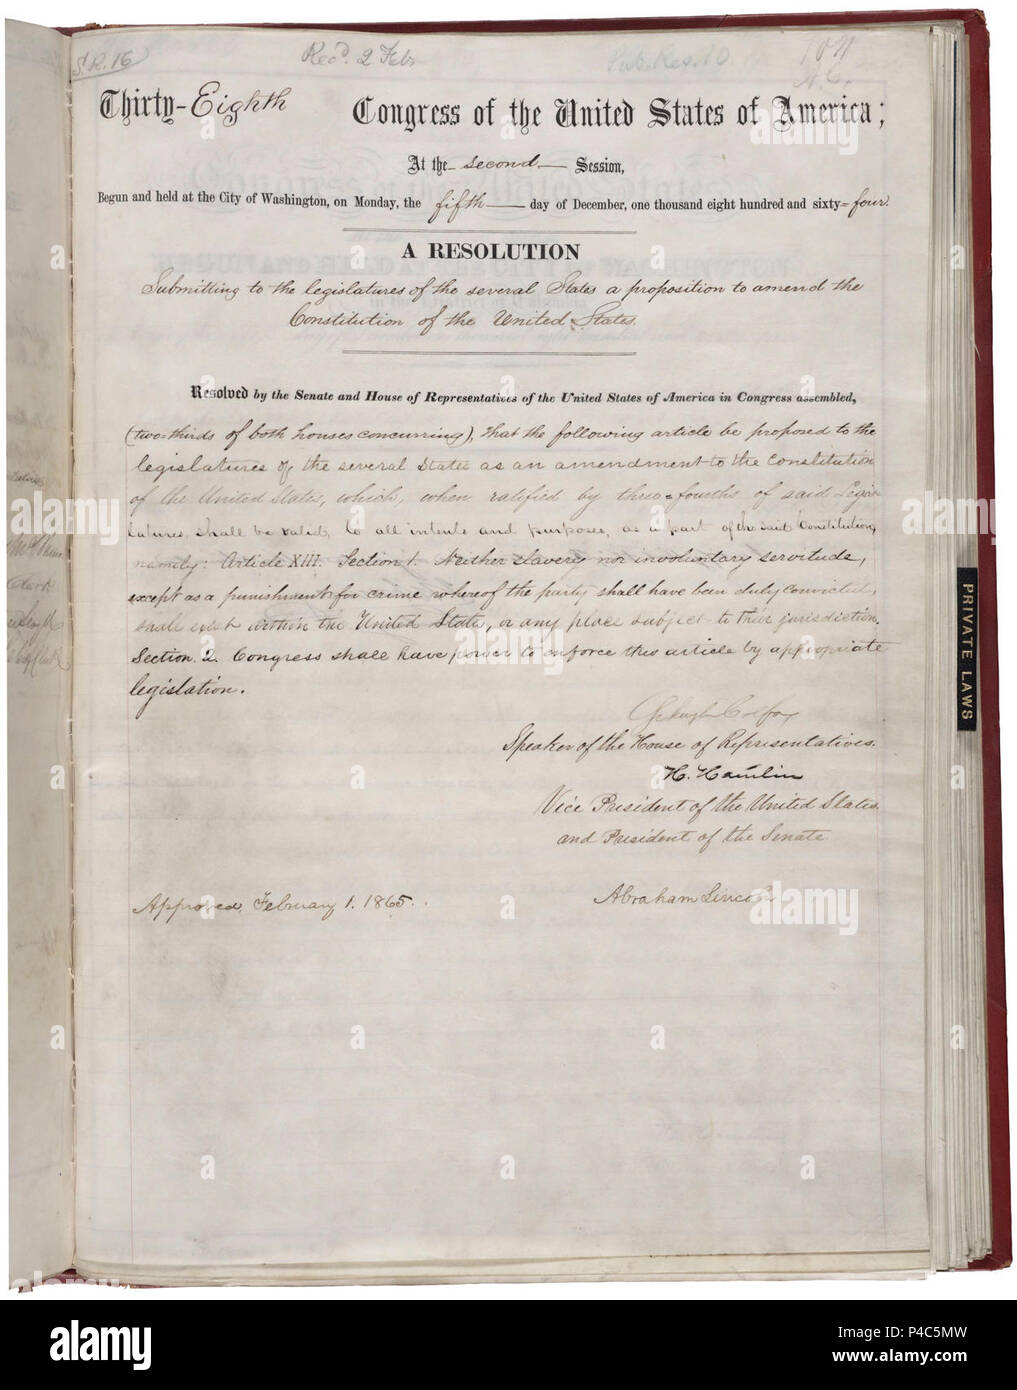 S.R. 16
Rec'd. 2 Feb.
Pub. Res. 10
Thirty-Eighth Congress of the United States of America;
At the second Session,
Begun and held at the City of Washington, on Monday, the fifth day of December, one thousand eight hundred and sixty-four.
A RESOLUTION
Submitting to the legislatures of the several States a proposition to amend the
Constitution of the United States.
Resolved by the Senate and House of Representatives of the United States of America in Congress assembled,
(two-thirds of both houses concurring), that the following article be proposed to the
legislatures of the several States as an amendment to the Constitution
of the United States, which, when ratified by three-fourths of said Legis-
latures, shall be valid, to all intents and purposes, as a part of the said Constitution,
namely: Article XIII. Section 1. Neither slavery nor involuntary servitude,
except as a punishment for crime whereof the party shall have been duly convicted,
shall exist within the United States, or any place subject to their jurisdiction.
Section 2. Congress shall have power to enforce this article by appropriate
legislation.
Schuyler Colfax
Speaker of the House of Representatives.
H. Hamlin
Vice President of the United States,
and President of the Senate
Approved, February 1. 1865.
Abraham Lincoln
PRIVATE LAWS
alamy
Image ID: P4C5MW
www.alamy.com